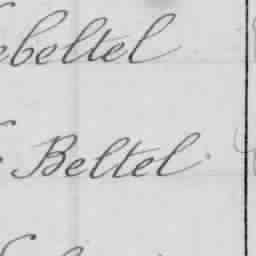 ebeltel
Beltel